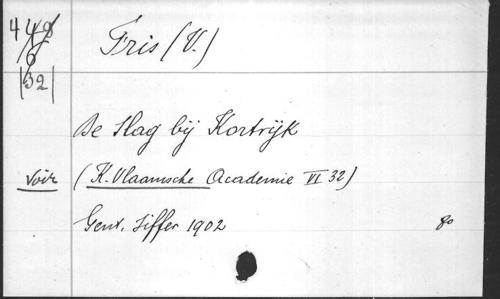 448
6
32
Fris (V.)
De Slag bij Kortrijk
voir (K. Vlaamsche Academie VI 32)
Gent, Siffer 1902 8o